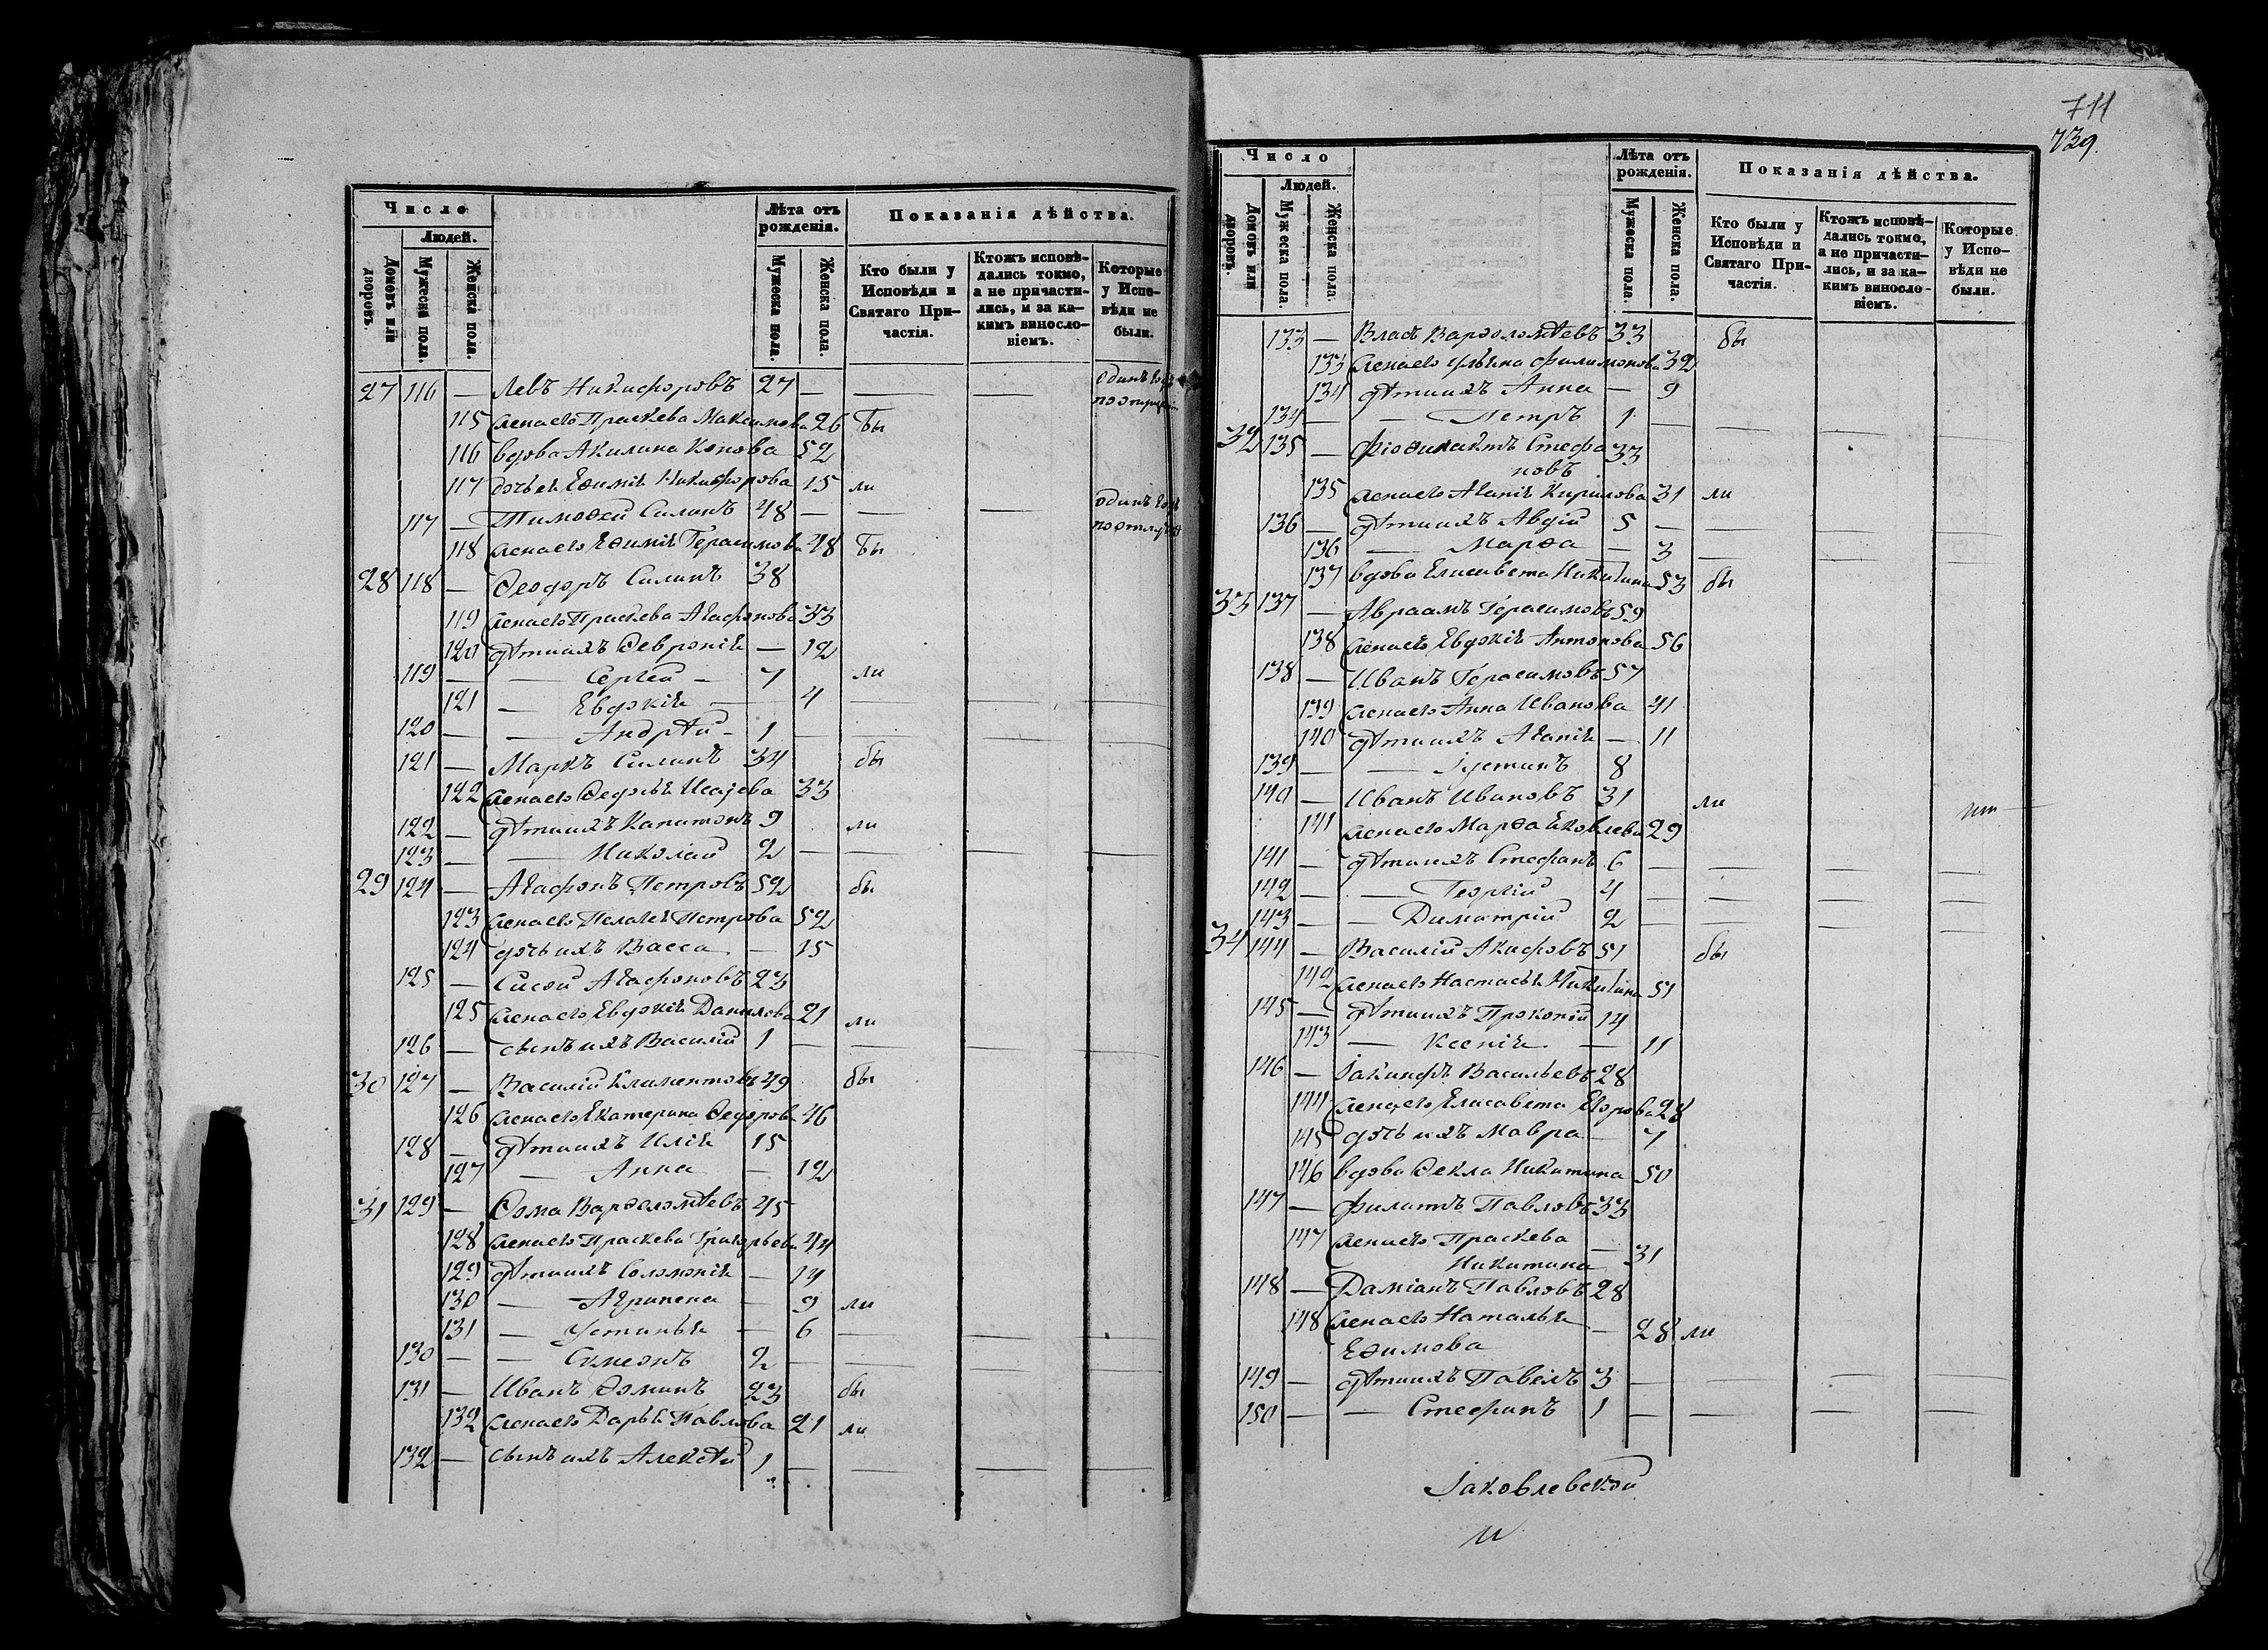 Число
Людей.
Домовъ или дворовъ.
Мужеска пола.
Женска пола.
Лѣта отъ рожденія.
Мужеска пола.
Женска пола.
Показанія дѣйства.
Кто были у Исповѣди и Святаго Причастія.
Ктожъ исповѣдались токмо, а не причастились, и за какимъ винословіемъ.
Которые у Исповѣди не были.
27 116 — Левъ Никифоровъ 27 — — — одинъ годъ
115 жена его Праскева Максимова 26 Бы
116 вдова Акилина Конова 52
117 дочь ея Еѳимія Никифорова 15 ли
117 — Тимоѳей Силинъ 48 — — — одинъ годъ по отлучкѣ
118 жена его Еѳимія Герасимова 48 Бы
28 118 — Ѳеодоръ Силинъ 38
119 жена его Праскева Агафонова 33
120 дѣти ихъ Ѳевронія — 12
119 — — Сергей — 7 ли
121 — Евдокія — 4 — — —
120 — — Андрѣй — 1 — — — —
121 — Маркъ Силинъ 34 бы
122 жена его Ѳедосья Исаева 33
122 — дѣти ихъ Капитонъ 9 ли
123 — — Николай 2 — — — —
29 124 — Агафонъ Петровъ 52 бы
123 жена его Пелагея Петрова 52
124 дочь ихъ Васса — 15
125 — Сисой Агафоновъ 23
125 жена его Евдокія Данилова 21 ли
126 — сынъ ихъ Василій 1 — — — —
30 127 — Василій Климентовъ 49 бы
126 жена его Екатерина Ѳедорова 46
128 — дѣти ихъ Илія 15
127 — Анна — 12
31 129 — Ѳома Варѳоломѣевъ 45
128 жена его Праскева Григорьева 44
129 дѣти ихъ Соломонія — 14
130 — Агрипена — 9 ли
131 — Устинья — 6 — — —
130 — — Симеонъ 2 — — — —
131 — Иванъ Ѳоминъ 23 бы
132 жена его Дарья Павлова 21 ли
132 — сынъ ихъ Алексѣй 1 — — — —
711
739
Число
Людей.
Домовъ или дворовъ.
Мужеска пола.
Женска пола.
Лѣта отъ рожденія.
Мужеска пола.
Женска пола.
Показанія дѣйства.
Кто были у Исповѣди и Святаго Причастія.
Ктожъ исповѣдались токмо, а не причастились, и за какимъ винословіемъ.
Которые у Исповѣди не были.
133 — Власъ Варѳоломѣевъ 33 бы
133 жена его Ульяна Филимонова 32
134 дѣти ихъ Анна — 9
134 — — Петръ 1 — — — —
32 135 — Стефа 33
новъ
135 жена его Агапія Кирилова 31 ли
136 — дѣти ихъ Авдій 5 — — — —
136 — Марѳа — 3 — — —
137 вдова Елисавета Никитина 53 бы
33 137 — Авраамъ Герасимовъ 59
138 жена его Евдокія Антонова 56
138 — Иванъ Герасимовъ 57
139 жена его Анна Иванова 41
140 дѣти ихъ Агапія — 11
139 — — Іустинъ 8
140 — Иванъ Ивановъ 31 ли
141 жена его Марѳа Яковлева 29
141 — дѣти ихъ Стефанъ 6 — — — —
142 — — Георгій 4 — — — —
143 — — Димитрій 2 — — — —
34 144 — Василій Акифовъ 51 бы
142 жена его Настасья Никитина 51
145 — дѣти ихъ Прокопій 14
143 — Ксенія — 11
146 — Іакинфъ Васильевъ 28
144 жена его Елисавета Егорова 28
145 дочь ихъ Мавра — 7
146 вдова Ѳекла Никитина 50
147 — Филатъ Павловъ 33
147 жена его Праскева — 31
Никитина
148 — Даміанъ Павловъ 28
148 жена его Наталья — 28 ли
Еѳимова
149 — дѣти ихъ Павелъ 3 — — — —
150 — — Стефанъ 1 — — — —
Іаковлевской